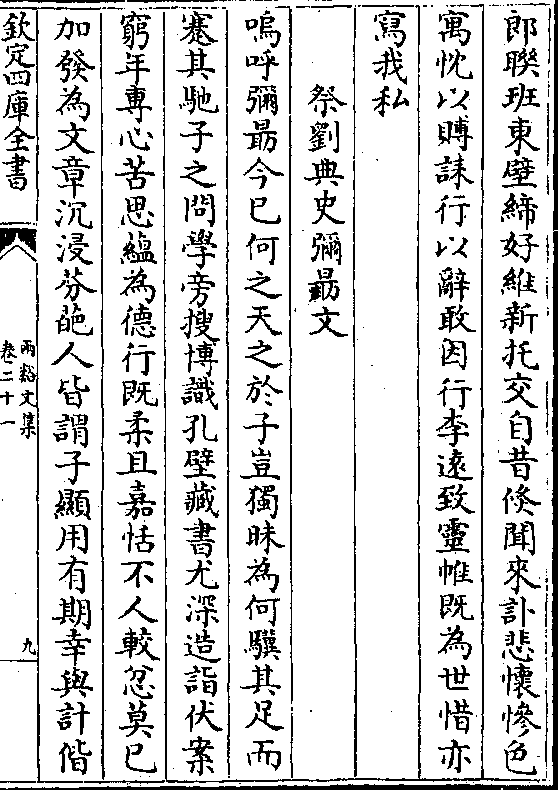 郎聯班東壁締好維新托交自昔倐聞來訃悲懷慘色
寓忱以賻誄行以辭敢因行李遠致靈帷既為世惜亦
寫我私
祭劉典史彌勗文
嗚呼彌勗今已何之天之於子豈獨昧為何驥其足而
蹇其馳子之問學旁搜博識孔壁藏書尤深造詣伏案
窮年專心苦思蘊為德行既柔且嘉恬不人較忿莫已
加發為文章沉浸芬葩人皆謂子顯用有期幸與計偕
欽定四庫全書
兩谿文集
卷二十一
九